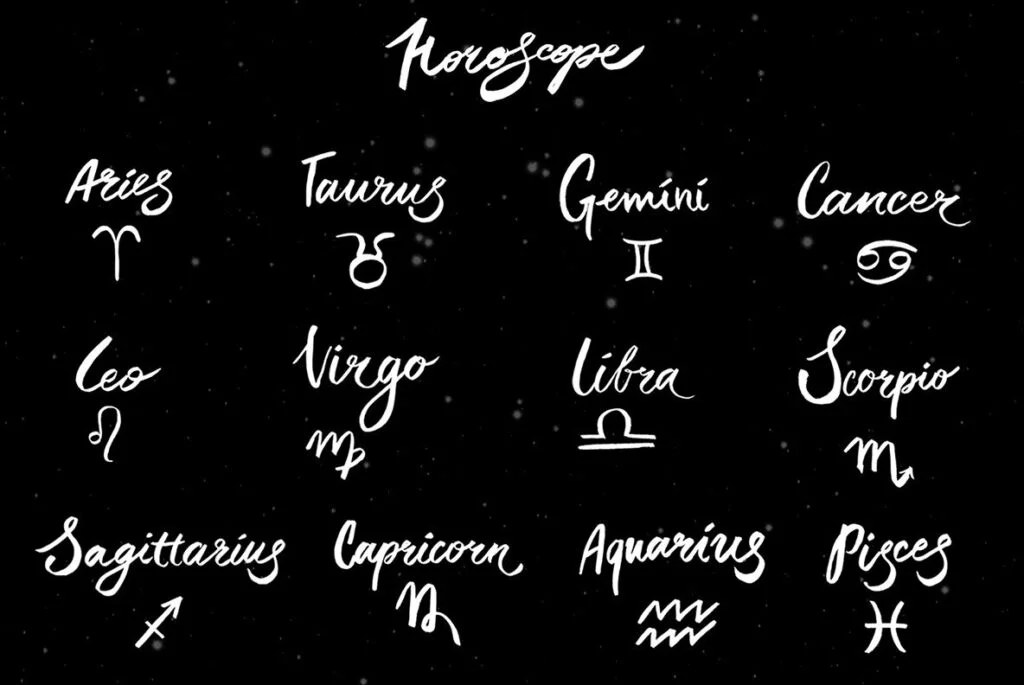 Horoscope
Aries Taurus Gemini Cancer
♈ ♉ ♊ ♋
Leo Virgo Libra Scorpio
♌ ♍ ♎ ♏
Sagittarius Capricorn Aquarius Pisces
♐ ♑ ♒ ♓